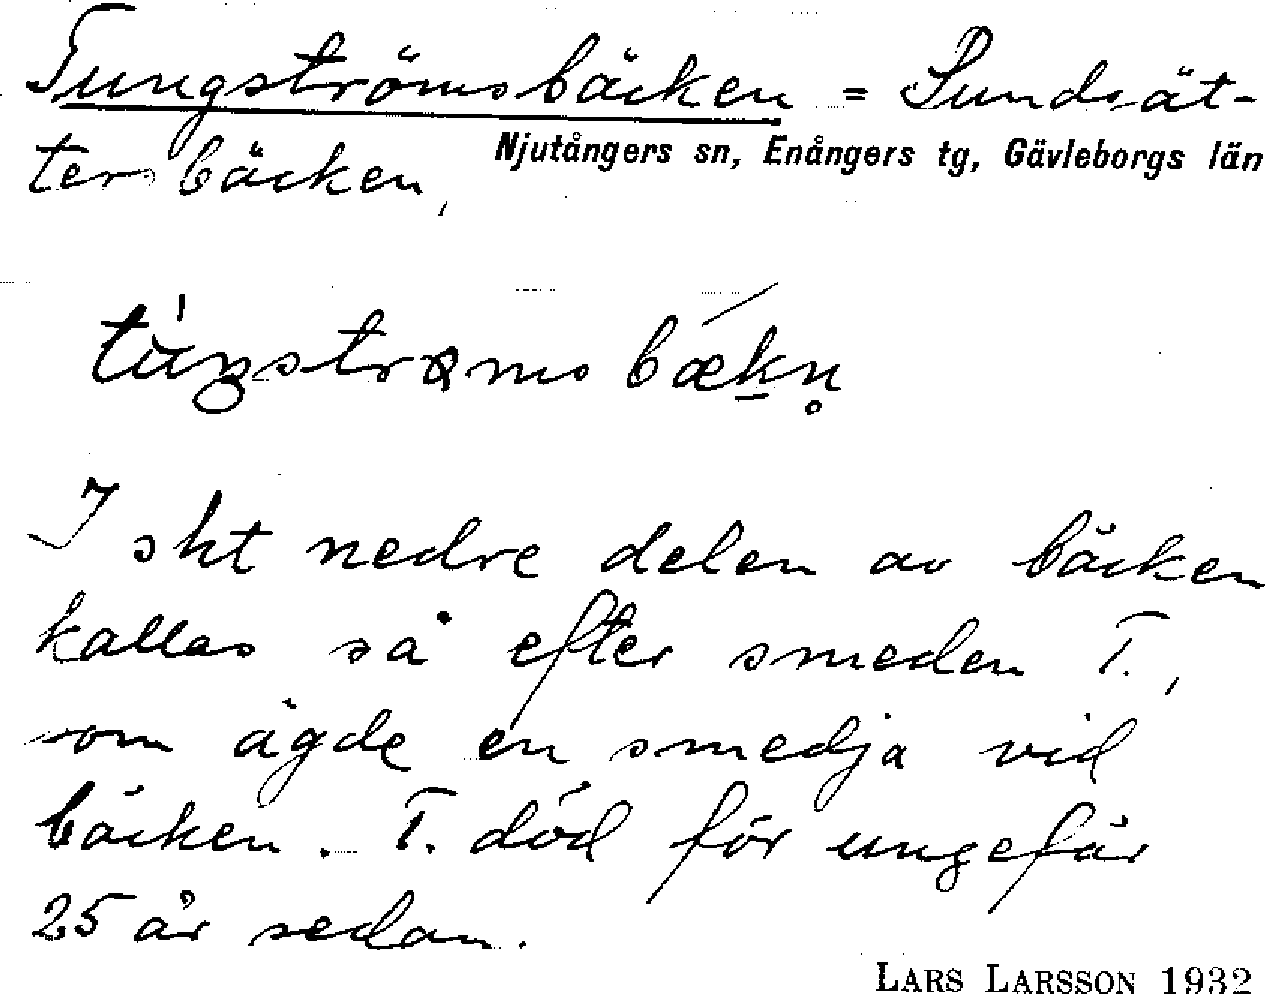 Tungströmsbäcken = Sundsät-
Njutångers sn, Enångers tg, Gävleborgs län
tersbäcken,
I sht nedre delen av bäcken
kallas så efter smeden T.,
som ägde en smedja vid
bäcken. T. död för ungefär
25 år sedan.
LARS LARSSON 1932